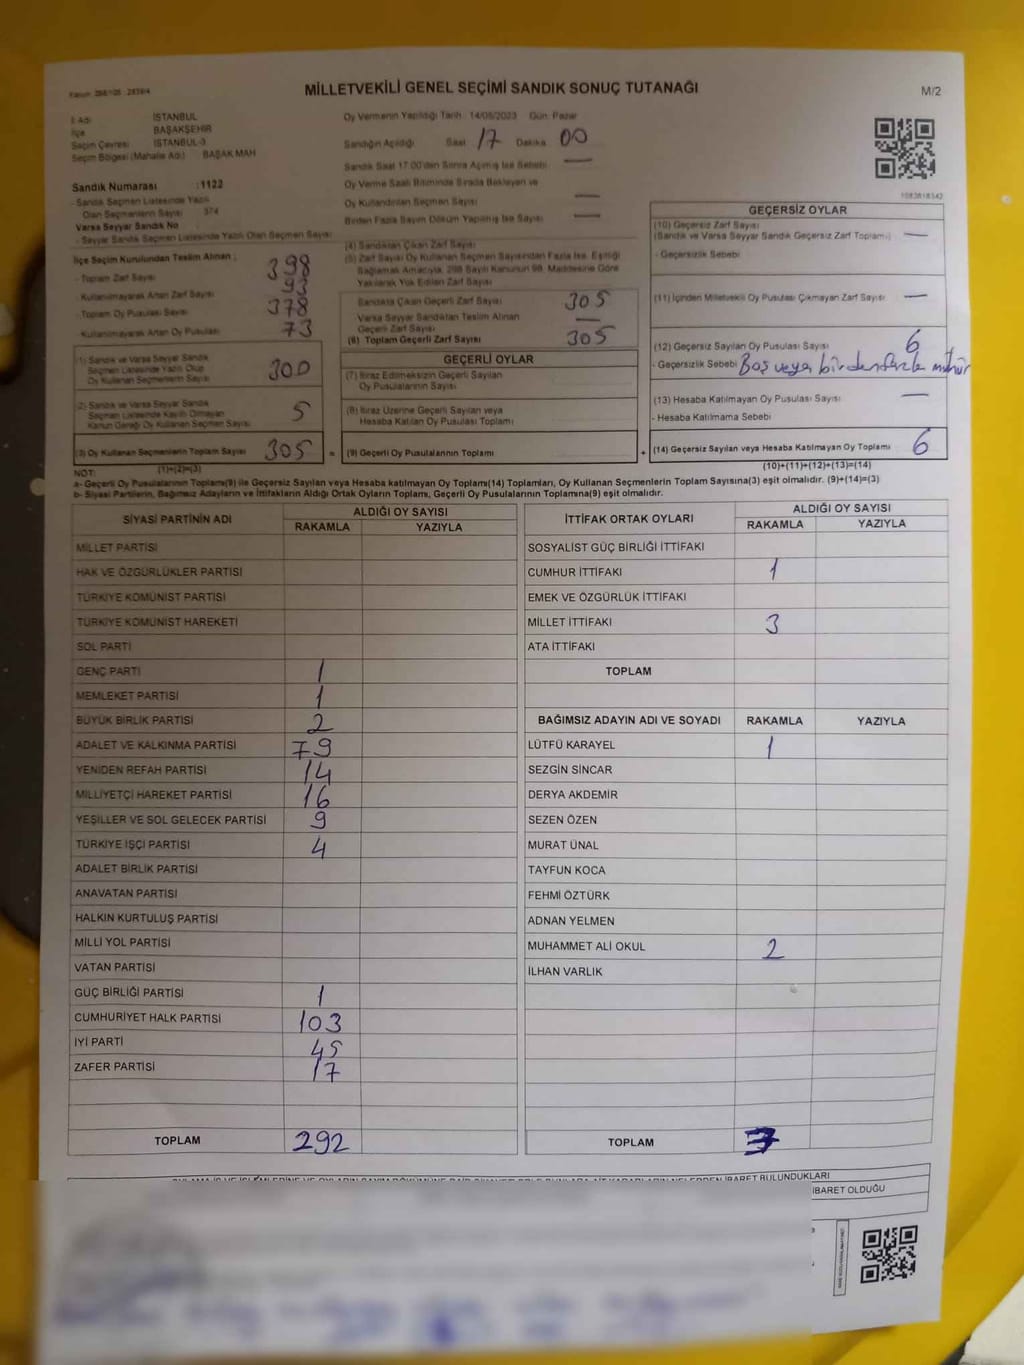 MİLLETVEKİLİ GENEL SEÇİMİ SANDIK SONUÇ TUTANAĞI
M/2
İl Adı İSTANBUL
İlçe BAŞAKŞEHİR
Seçim Çevresi İSTANBUL-3
Seçim Bölgesi (Mahalle Adı) BAŞAK MAH
Sandık Numarası :1122
- Sandık Seçmen Listesinde Yazılı
Olan Seçmenlerin Sayısı 374
Varsa Seyyar Sandık No
- Seyyar Sandık Seçmen Listesinde Yazılı Olan Seçmen Sayısı
İlçe Seçim Kurulundan Teslim Alınan ;
- Toplam Zarf Sayısı 398
- Kullanılmayarak Artan Zarf Sayısı 93
- Toplam Oy Pusulası Sayısı 378
- Kullanılmayarak Artan Oy Pusulası 73
(1) Sandık ve Varsa Seyyar Sandık
Seçmen Listesinde Yazılı Olup
Oy Kullanan Seçmenlerin Sayısı 300
(2) Sandık ve Varsa Seyyar Sandık
Seçmen Listesinde Kayıtlı Olmayan
Kanun Gereği Oy Kullanan Seçmen Sayısı 5
(3) Oy Kullanan Seçmenlerin Toplam Sayısı 305 =
(1)+(2)=(3)
Oy Vermenin Yapıldığı Tarih : 14/05/2023 Gün: Pazar
Sandığın Açıldığı Saat 17 Dakika 00
Sandık Saat 17.00'den Sonra Açılmış İse Sebebi: —
Oy Verme Saati Bitiminde Sırada Bekleyen ve
Oy Kullandırılan Seçmen Sayısı —
Birden Fazla Sayım Döküm Yapılmış İse Sayısı —
(4) Sandıktan Çıkan Zarf Sayısı
(5) Zarf Sayısı Oy Kullanan Seçmen Sayısından Fazla İse, Eşitliği
Sağlamak Amacıyla, 298 Sayılı Kanunun 98. Maddesine Göre
Yakılarak Yok Edilen Zarf Sayısı
Sandıkta Çıkan Geçerli Zarf Sayısı 305
Varsa Seyyar Sandıktan Teslim Alınan
Geçerli Zarf Sayısı —
(6) Toplam Geçerli Zarf Sayısı 305
GEÇERLİ OYLAR
(7) İtiraz Edilmeksizin Geçerli Sayılan
Oy Pusulalarının Sayısı
(8) İtiraz Üzerine Geçerli Sayılan veya
Hesaba Katılan Oy Pusulası Toplamı
(9) Geçerli Oy Pusulalarının Toplamı +
GEÇERSİZ OYLAR
(10) Geçersiz Zarf Sayısı
(Sandık ve Varsa Seyyar Sandık Geçersiz Zarf Toplamı) —
- Geçersizlik Sebebi
(11) İçinden Milletvekili Oy Pusulası Çıkmayan Zarf Sayısı —
(12) Geçersiz Sayılan Oy Pusulası Sayısı 6
- Geçersizlik Sebebi Boş veya birden fazla mühür
(13) Hesaba Katılmayan Oy Pusulası Sayısı —
- Hesaba Katılmama Sebebi
(14) Geçersiz Sayılan veya Hesaba Katılmayan Oy Toplamı 6
(10)+(11)+(12)+(13)=(14)
NOT:
a- Geçerli Oy Pusulasının Toplamı(9) ile Geçersiz Sayılan veya Hesaba katılmayan Oy Toplamı(14) Toplamları, Oy Kullanan Seçmenlerin Toplam Sayısına(3) eşit olmalıdır. (9)+(14)=(3)
b- Siyasi Partilerin, Bağımsız Adayların ve İttifakların Aldığı Ortak Oyların Toplamı, Geçerli Oy Pusulalarının Toplamına(9) eşit olmalıdır.
SİYASİ PARTİNİN ADI
ALDIĞI OY SAYISI
RAKAMLA YAZIYLA
MİLLET PARTİSİ
HAK VE ÖZGÜRLÜKLER PARTİSİ
TÜRKİYE KOMÜNİST PARTİSİ
TÜRKİYE KOMÜNİST HAREKETİ
SOL PARTİ
GENÇ PARTİ 1
MEMLEKET PARTİSİ 1
BÜYÜK BİRLİK PARTİSİ 2
ADALET VE KALKINMA PARTİSİ 79
YENİDEN REFAH PARTİSİ 14
MİLLİYETÇİ HAREKET PARTİSİ 16
YEŞİLLER VE SOL GELECEK PARTİSİ 9
TÜRKİYE İŞÇİ PARTİSİ 4
ADALET BİRLİK PARTİSİ
ANAVATAN PARTİSİ
HALKIN KURTULUŞ PARTİSİ
MİLLİ YOL PARTİSİ
VATAN PARTİSİ
GÜÇ BİRLİĞİ PARTİSİ 1
CUMHURİYET HALK PARTİSİ 103
İYİ PARTİ 45
ZAFER PARTİSİ 17
TOPLAM 292
İTTİFAK ORTAK OYLARI
ALDIĞI OY SAYISI
RAKAMLA YAZIYLA
SOSYALİST GÜÇ BİRLİĞİ İTTİFAKI
CUMHUR İTTİFAKI 1
EMEK VE ÖZGÜRLÜK İTTİFAKI
MİLLET İTTİFAKI 3
ATA İTTİFAKI
TOPLAM
BAĞIMSIZ ADAYIN ADI VE SOYADI RAKAMLA YAZIYLA
LÜTFÜ KARAYEL 1
SEZGİN SİNCAR
DERYA AKDEMİR
SEZEN ÖZEN
MURAT ÜNAL
TAYFUN KOCA
FEHMİ ÖZTÜRK
ADNAN YELMEN
MUHAMMET ALİ OKUL 2
İLHAN VARLIK
TOPLAM 3
BULUNDUKLARI
İBARET OLDUĞU